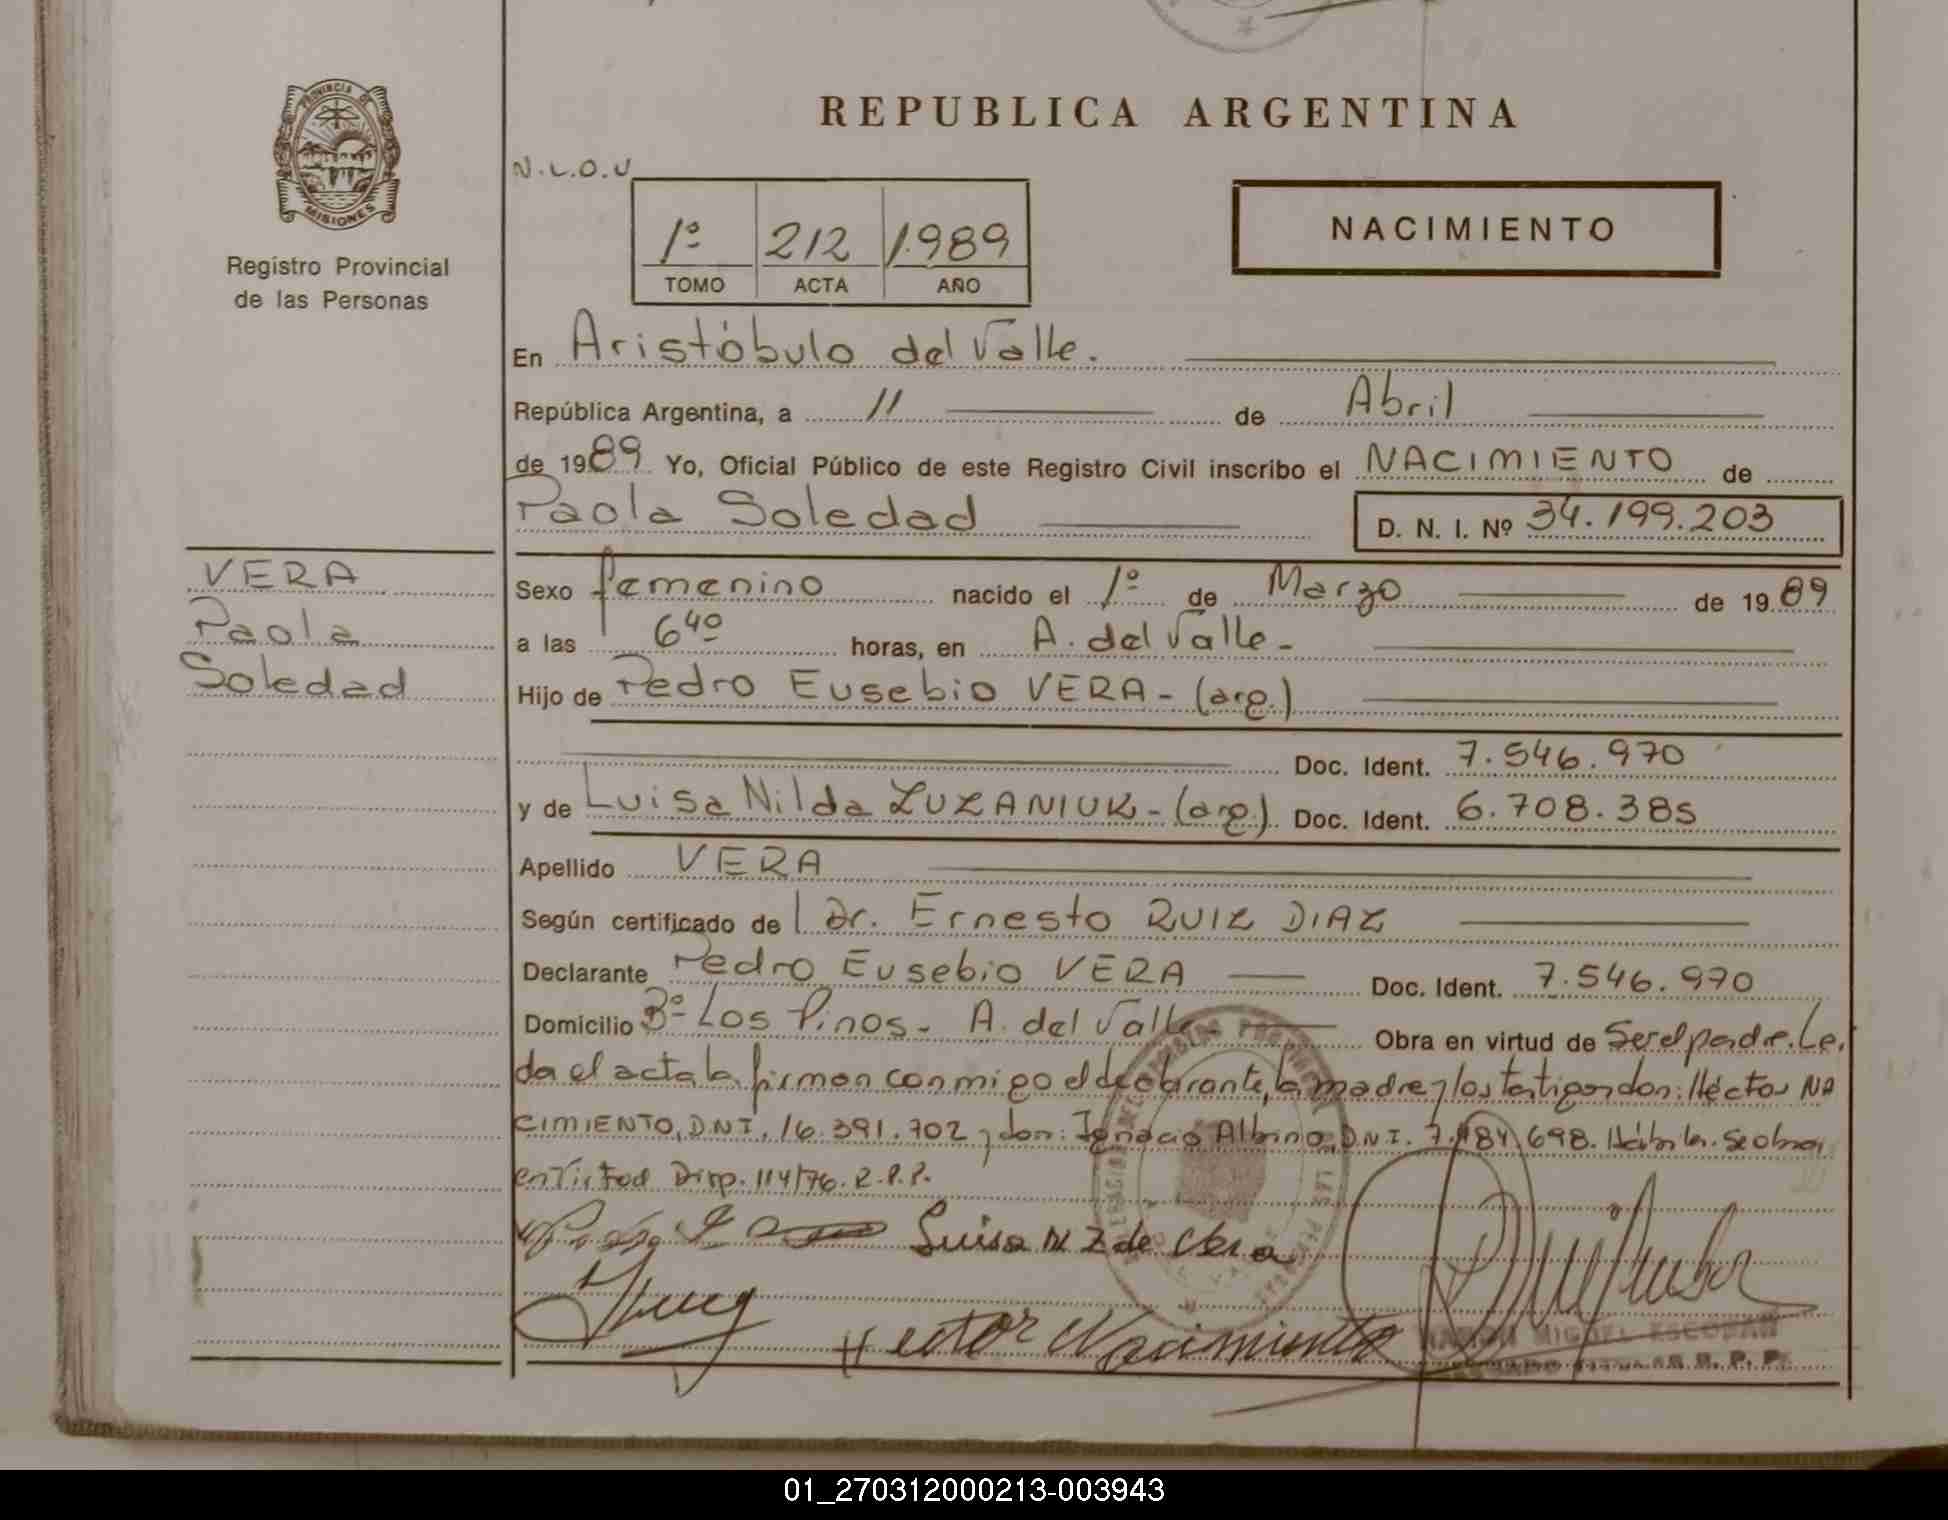 REPUBLICA ARGENTINA
PROVINCIA DE
MISIONES
Registro Provincial
de las Personas
N.L.O.V
1º 212 1.989
TOMO ACTA AÑO
NACIMIENTO
En Aristóbulo del Valle.
República Argentina, a 11 de Abril
de 1989 Yo, Oficial Público de este Registro Civil inscribo el NACIMIENTO de
Paola Soledad D. N. I. Nº 34.199.203
VERA
Paola
Soledad
Sexo femenino nacido el 1º de Marzo de 1989
a las 6 40 horas, en A. del Valle -
Hijo de Pedro Eusebio VERA - (arg.)
Doc. Ident. 7.546.970
y de Luisa Nilda ZUZANIUK - (arg.) Doc. Ident. 6.708.385
Apellido VERA
Según certificado de l Dr. Ernesto RUIZ DIAZ
Declarante Pedro Eusebio VERA Doc. Ident. 7.546.970
Domicilio Bº Los Pinos - A. del Valle - Obra en virtud de Ser el padre. Le,
da el acta la firman conmigo el declarante, la madre y los testigos don: Héctor NA
CIMIENTO, D.N.I. 16.391.702 y don: Ignacio Albino, D.N.I. 7.484.698. Hábiles. Se obra,
en Virtud Disp. 114/76. R.P.P.
Luisa N Z de Vera
Hector Nacimiento
MIGUEL ESCOBAR
R. P. P.
01_270312000213-003943